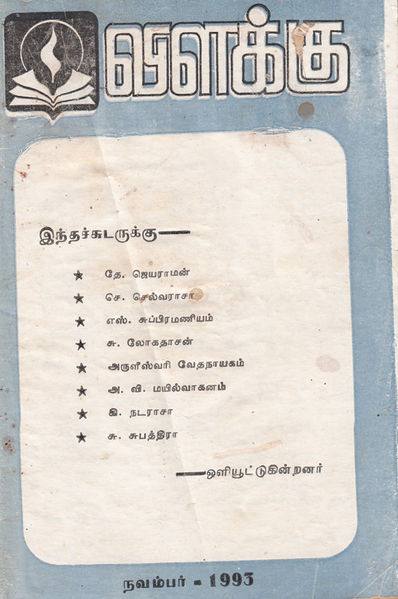 விளக்கு
இந்தச்சுடருக்கு——
★ தே. ஜெயராமன்
★ செ. செல்வராசா
★ எஸ். சுப்பிரமணியம்
★ சு. லோகதாசன்
★ அருளீஸ்வரி வேதநாயகம்
★ அ. வி. மயில்வாகனம்
★ இ. நடராசா
★ சு. சுபத்திரா
——ஒளியூட்டுகின்றனர்
நவம்பர் - 1993